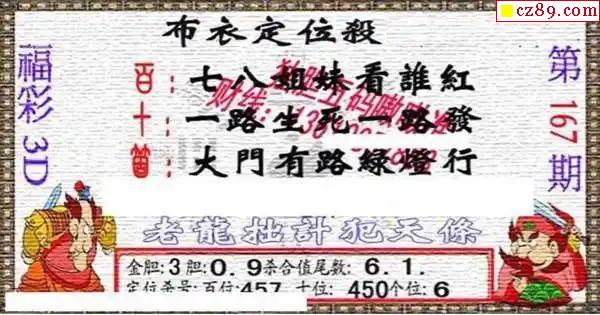 cz89.com
布衣定位殺
福彩3D
第167期
百：七八姐妹看誰紅
十：一路生死一路發
個：大門有路綠燈行
老龍拙計犯天條
金胆:3胆:0.9杀合值尾数:6.1.
定位杀号:百位:457 十位:450个位:6